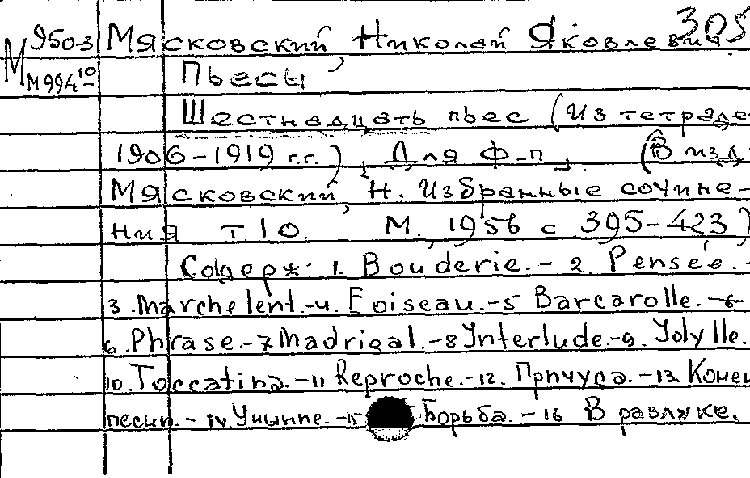 305
9503 Мясковский Николай Яковлевич
М994 10 Пьесы
Шестнадцать пьес (Из тетраде
1906-1919 г.г.). Для ф-п. (В изд.
Мясковский, Н. Избранные сочине-
ния т 10. М., 1956 с 395-423)
Содерж: 1. Bouderie. - 2. Pensée. -
3. Marche lent. - 4. L'oiseau. - 5 Barcarolle. - 6-
6. Phrase. - 7 Madrigal. - 8 Interlude. - 9. Idylle.
10. Toccatina. - 11 Reproche. - 12. Причуда. - 13. Конец
песни. - 14 Уныние. - 15 Борьба. - 16 В разлуке.